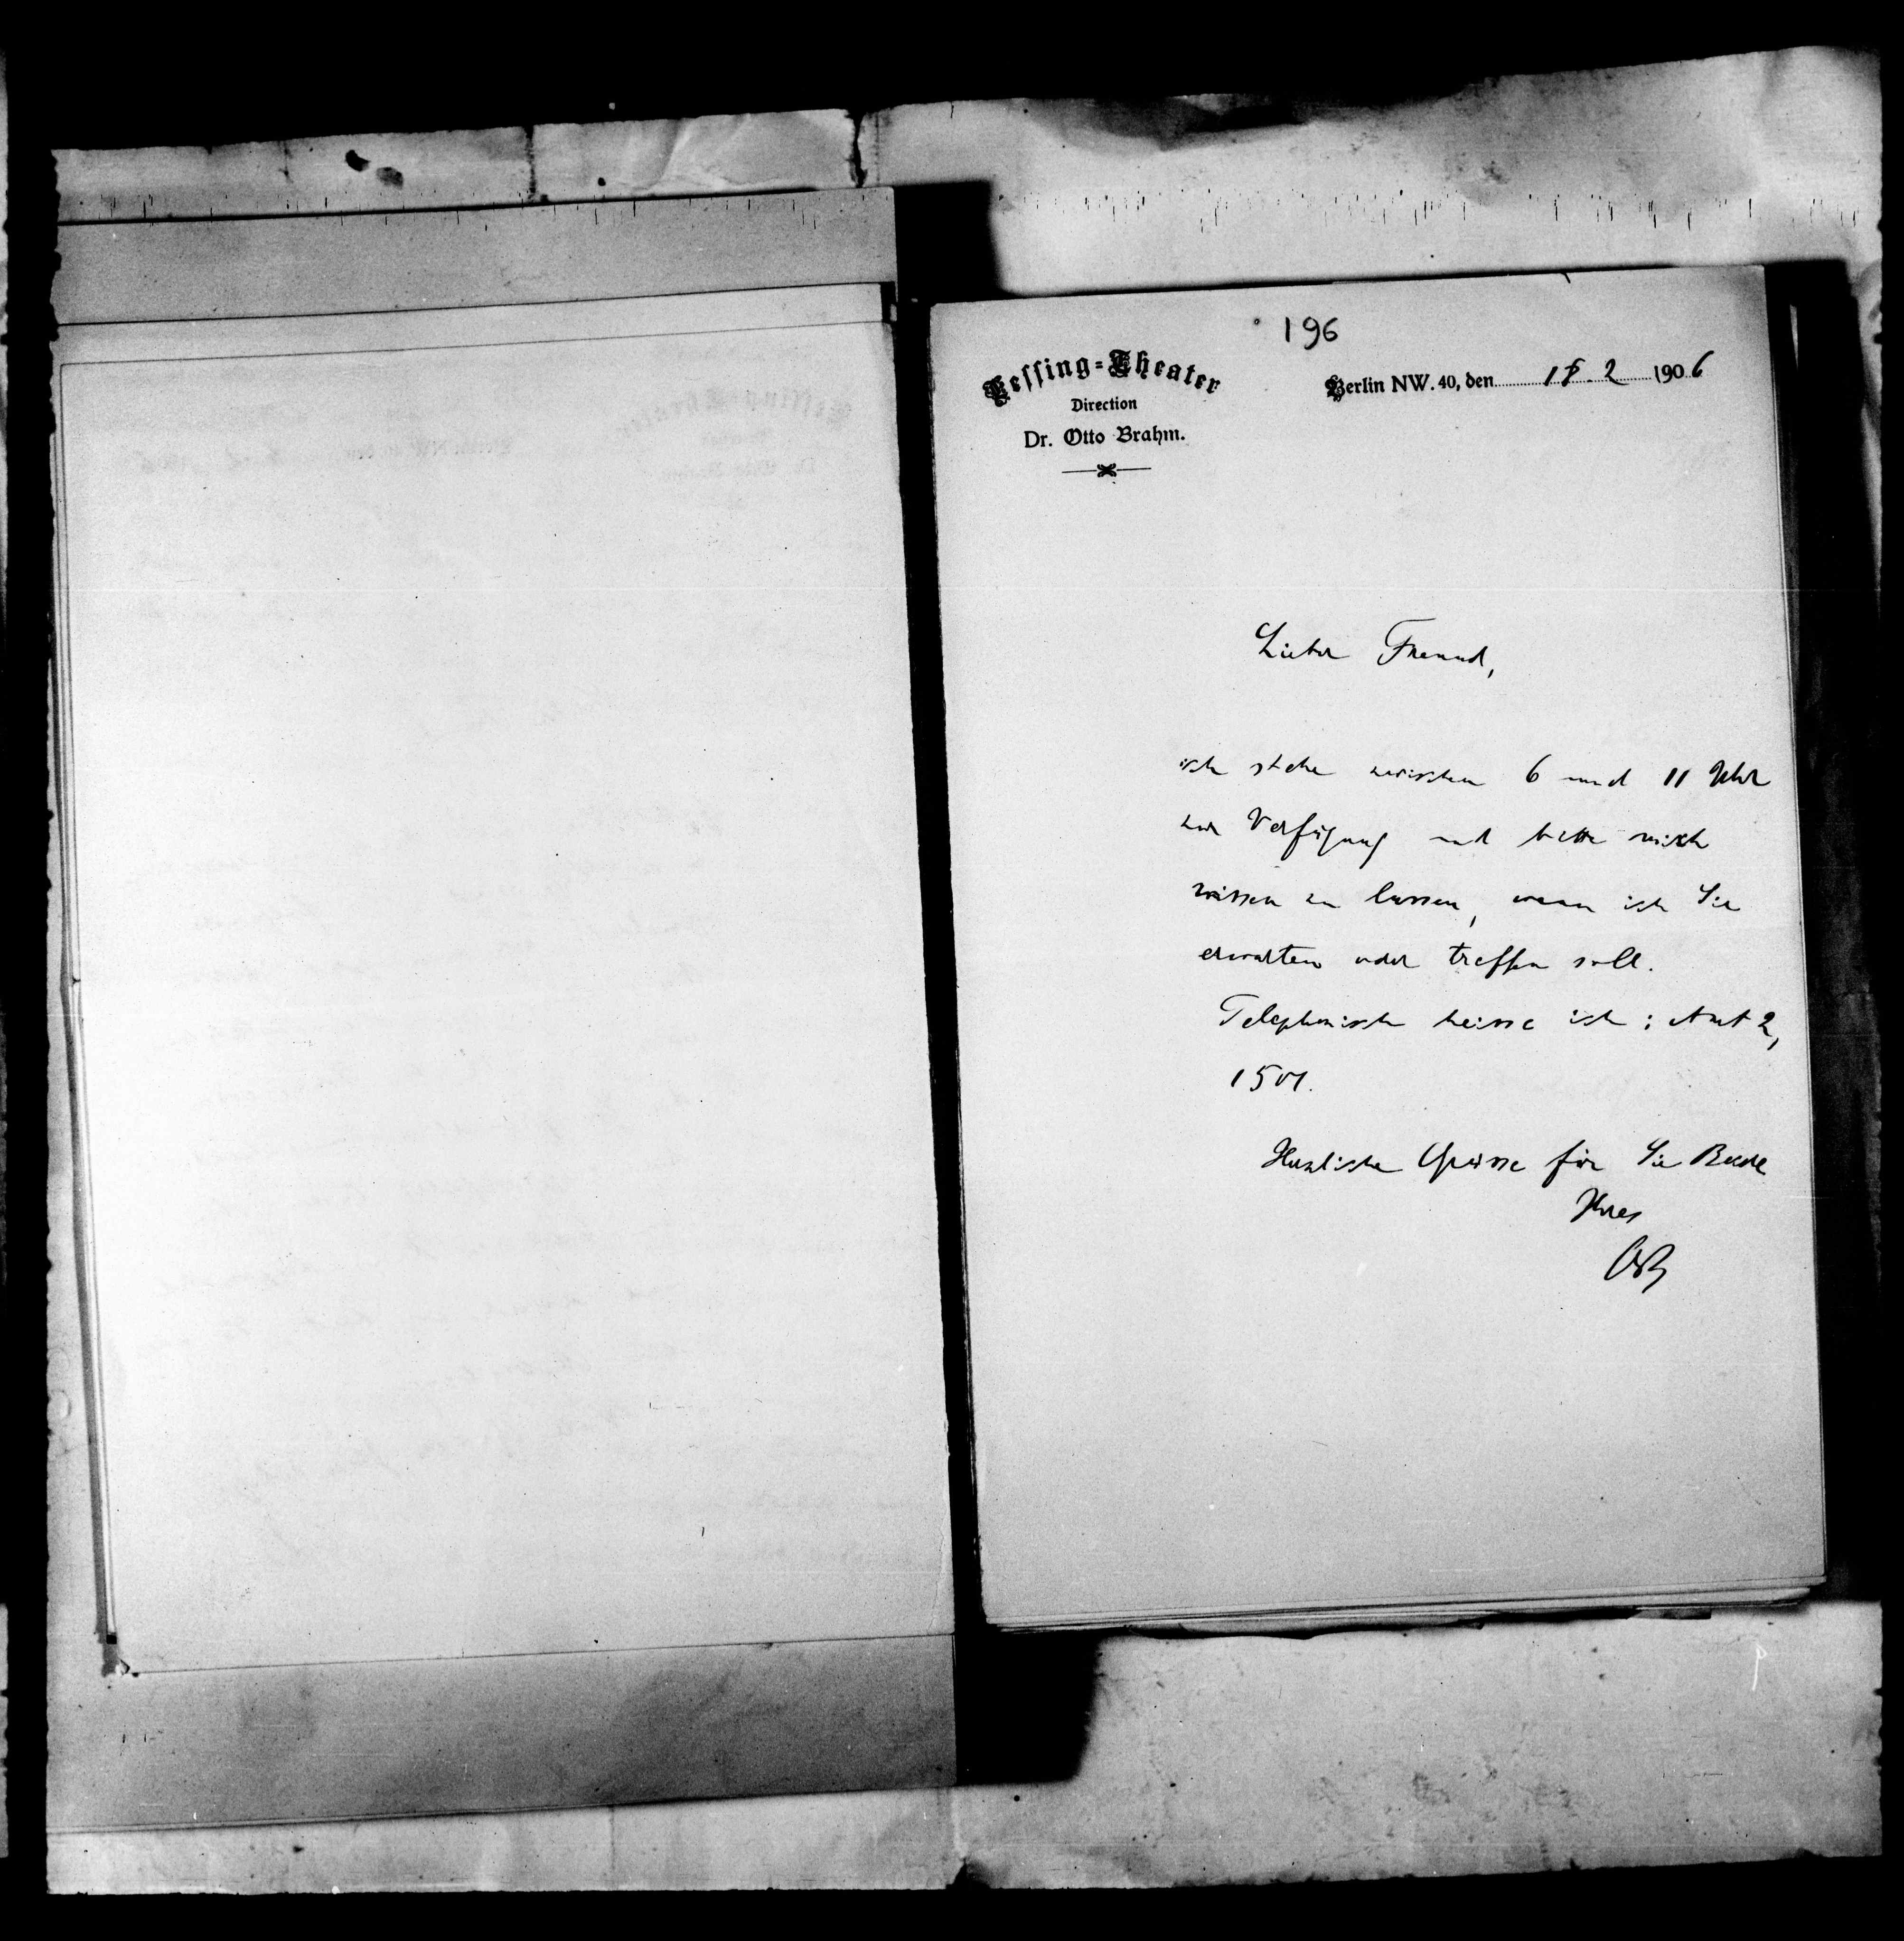 196
Lessing-Theater
Direction
Dr. Otto Brahm.
Berlin NW. 40, den 18. 2 1906
Lieber Freund,
ich stehe zwischen 6 und 11 Uhr
zur Verfügung und bitte mich
wissen zu lassen, wann ich Sie
erwarten oder treffen soll.
Telephonisch heisse ich: Amt 2,
1501.
Herzliche Grüsse für Sie Beide
Ihres
OB